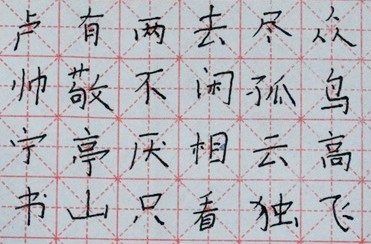 众鸟高飞
尽孤云独
去闲相看
两不厌只
有敬亭山
卢帅宇书